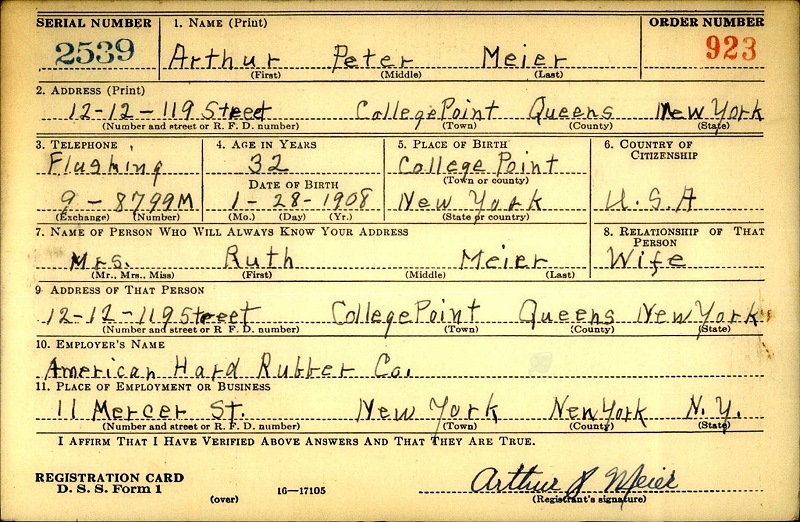 SERIAL NUMBER 1. NAME (Print) ORDER NUMBER
2539 Arthur Peter Meier 923
(First) (Middle) (Last)
2. ADDRESS (Print)
12-12-119 Street College Point Queens New York
(Number and street or R. F. D. number) (Town) (County) (State)
3. TELEPHONE 4. AGE IN YEARS 5. PLACE OF BIRTH 6. COUNTRY OF CITIZENSHIP
Flushing 32 College Point
DATE OF BIRTH (Town or county)
9-8799M 1-28-1908 New York U.S.A
(Exchange) (Number) (Mo.) (Day) (Yr.) (State or country)
7. NAME OF PERSON WHO WILL ALWAYS KNOW YOUR ADDRESS 8. RELATIONSHIP OF THAT PERSON
Mrs. Ruth Meier Wife
(Mr., Mrs., Miss) (First) (Middle) (Last)
9 ADDRESS OF THAT PERSON
12-12-119 Street College Point Queens New York
(Number and street or R. F. D. number) (Town) (County) (State)
10. EMPLOYER'S NAME
American Hard Rubber Co.
11. PLACE OF EMPLOYMENT OR BUSINESS
11 Mercer St. New York New York N.Y.
(Number and street or R. F. D. number) (Town) (County) (State)
I AFFIRM THAT I HAVE VERIFIED ABOVE ANSWERS AND THAT THEY ARE TRUE.
REGISTRATION CARD Arthur P Meier
D. S. S. Form 1 (over) 16—17105 (Registrant's signature)